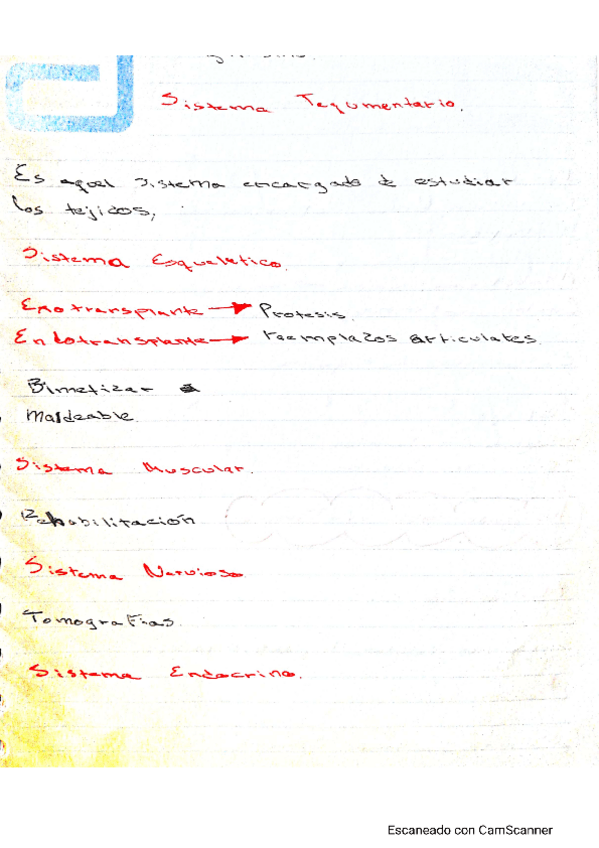 Sistema Tegumentario.
Es aquel sistema encargado de estudiar
los tejidos,
Sistema Esqueletico.
Exotransplante → Protesis.
Endotransplante → reemplazos articulates.
Bimetizar
Maldeable.
Sistema Muscular.
Rehabilitación
Sistema Nervioso
Tomografias.
Sistema Endocrino.
Escaneado con CamScanner